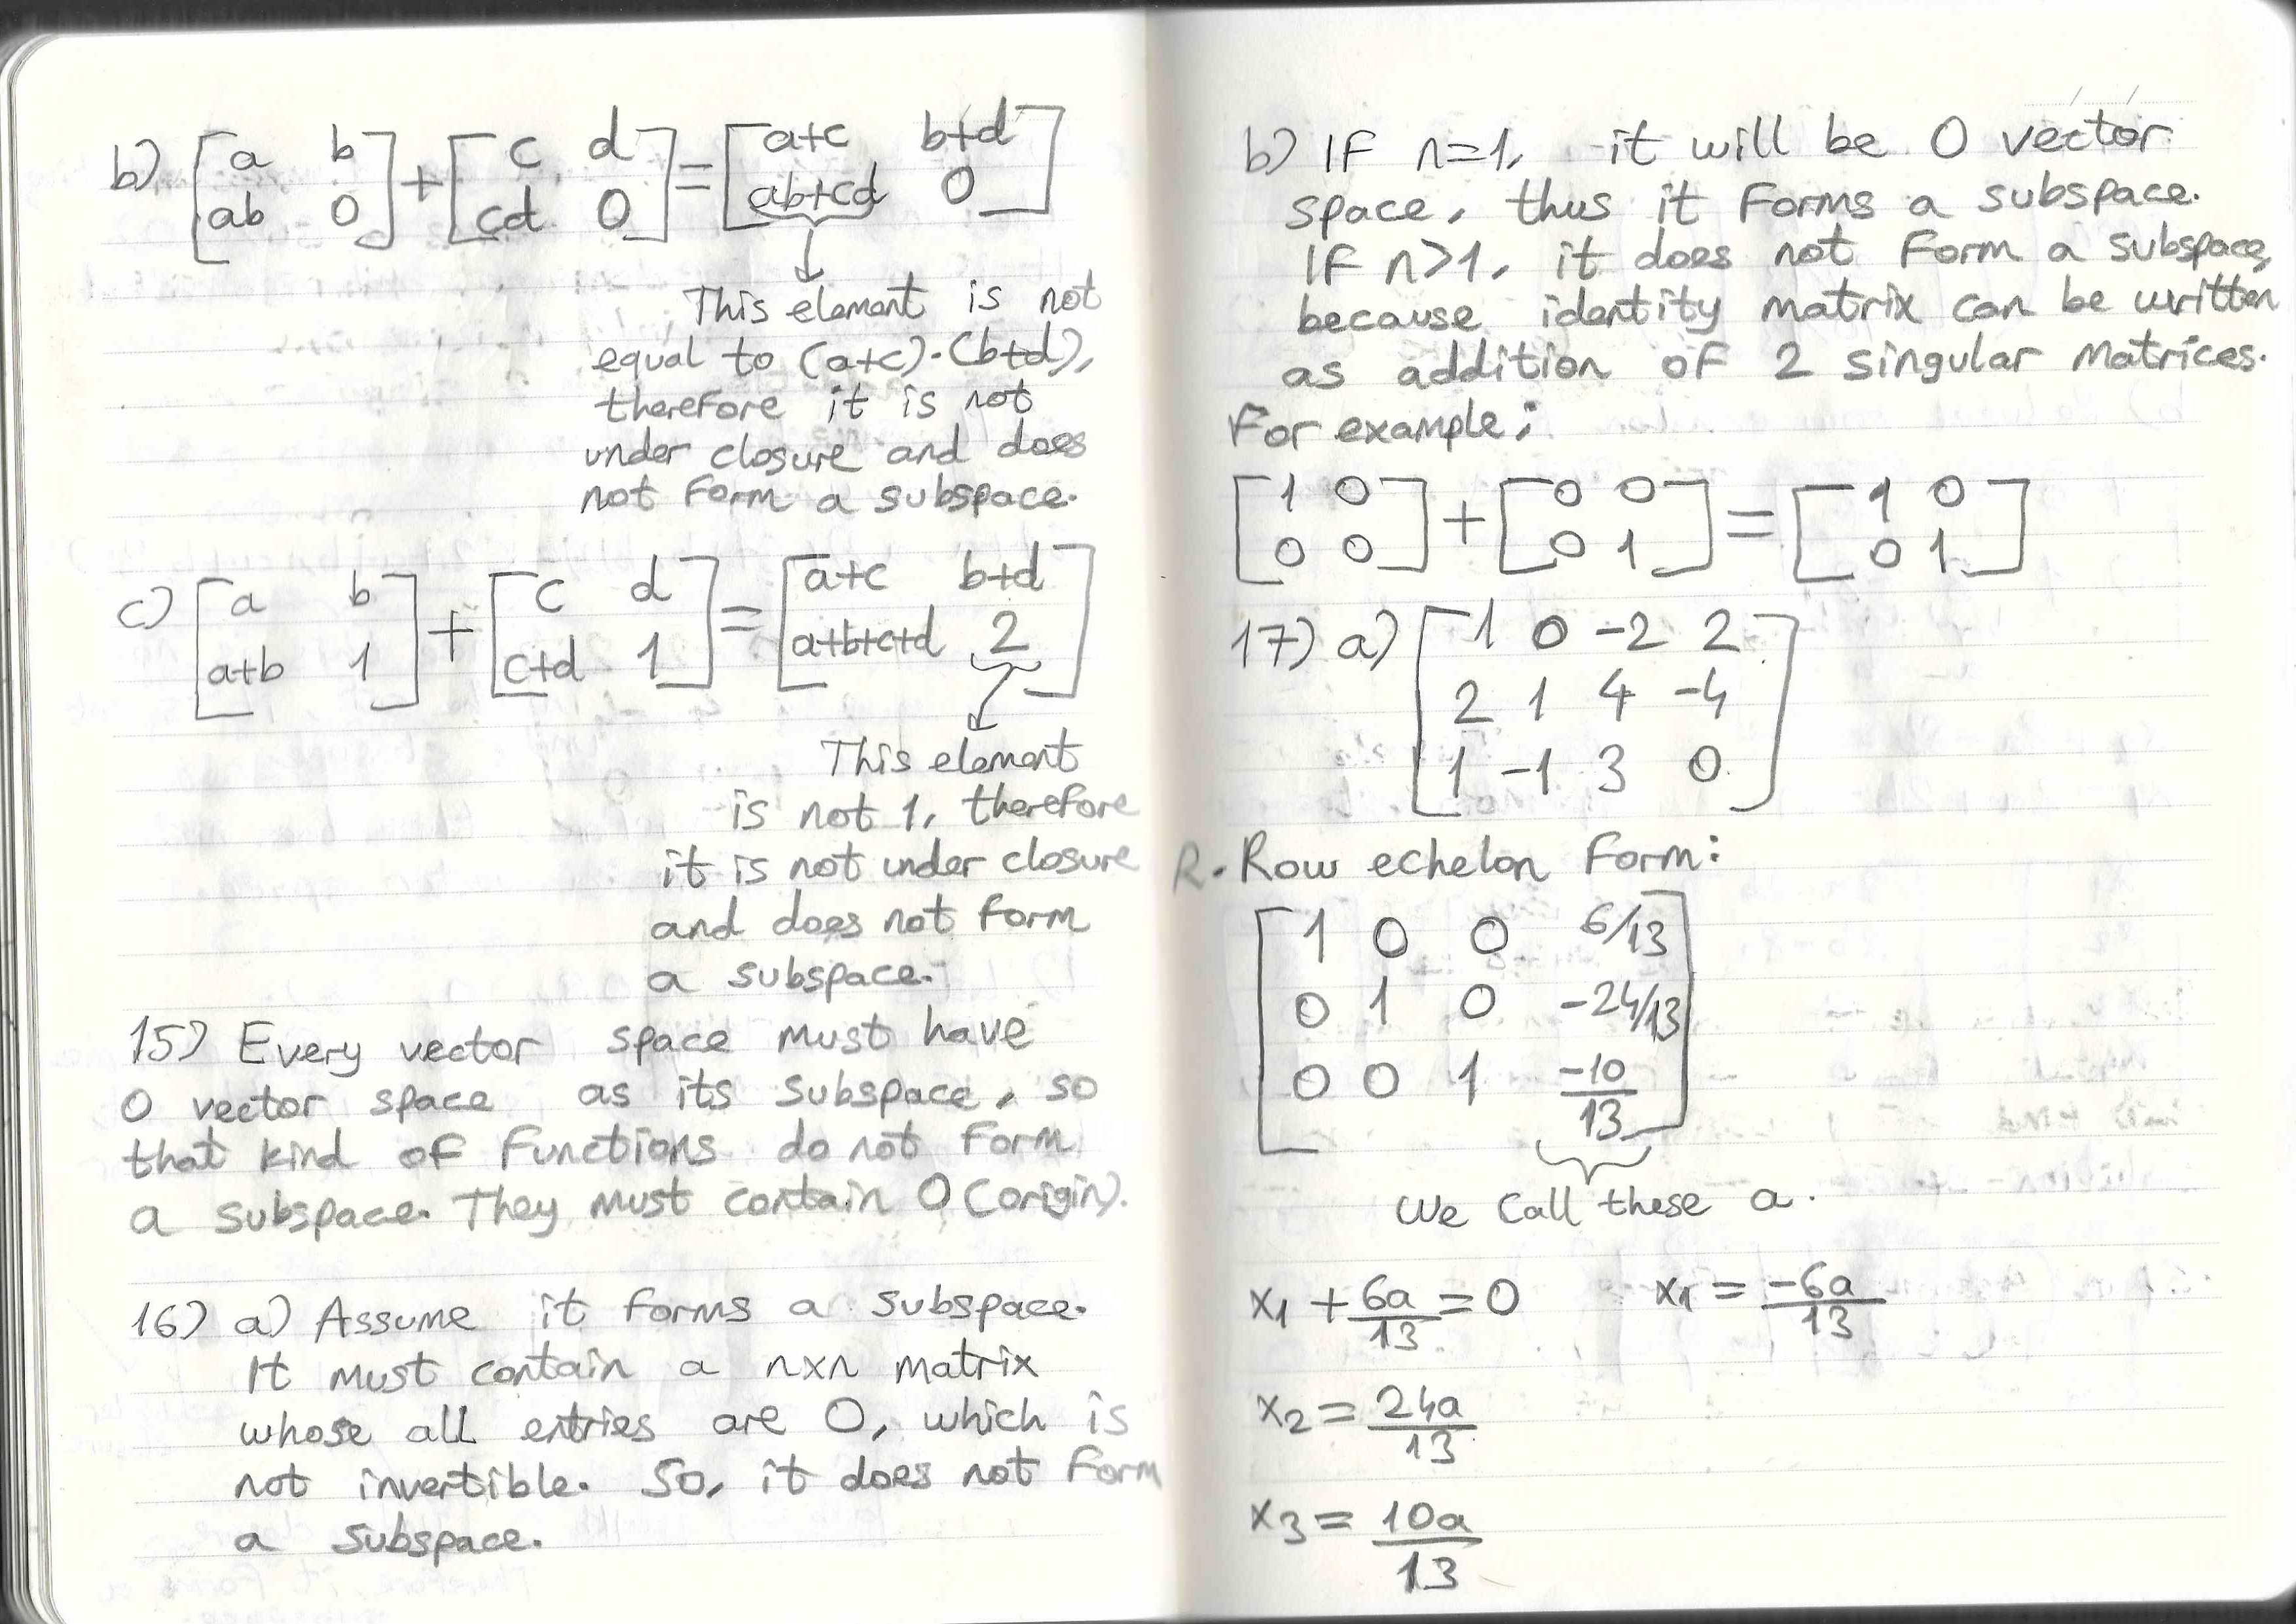 b) [a b] + [c d] = [a+c b+d]
[ab 0] [cd 0] [ab+cd 0]
This element is not
equal to (a+c)·(b+d),
therefore it is not
under closure and does
not form a subspace.
c) [a b] + [c d] = [a+c b+d]
[a+b 1] [c+d 1] [a+b+c+d 2]
This element
is not 1, therefore
it is not under closure
and does not form
a subspace.
15) Every vector space must have
0 vector space as its subspace, so
that kind of functions do not form
a subspace. They must contain 0 (origin).
16) a) Assume it forms a subspace.
It must contain a nxn matrix
whose all entries are 0, which is
not invertible. So, it does not form
a subspace.
b) If n=1, it will be 0 vector
space, thus it forms a subspace.
If n>1, it does not form a subspace,
because identity matrix can be written
as addition of 2 singular matrices.
For example;
[1 0] + [0 0] = [1 0]
[0 0] [0 1] [0 1]
17) a) [1 0 -2 2]
[2 1 4 -4]
[1 -1 3 0]
R. Row echelon form:
[1 0 0 6/13]
[0 1 0 -24/13]
[0 0 1 -10/13]
We call these a.
x₁ + 6a/13 = 0 x₁ = -6a/13
x₂ = 24a/13
x₃ = 10a/13